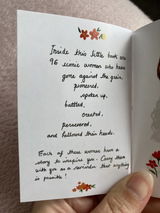 Inside this little book are
96 iconic women who have
gone against the grain,
pioneered,
spoken up,
battled,
created,
persevered,
and followed their hearts.
Each of these women have a
story to inspire you. Carry them
with you as a reminder that anything
is possible!